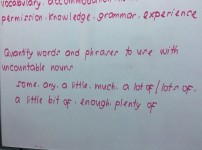 vocabulary. accommodation.
permission. knowledge. grammar. experience
Quantity words and phrases to use with
uncountable nouns
some. any. a little. much. a lot of / lots of.
a little bit of. enough. plenty of